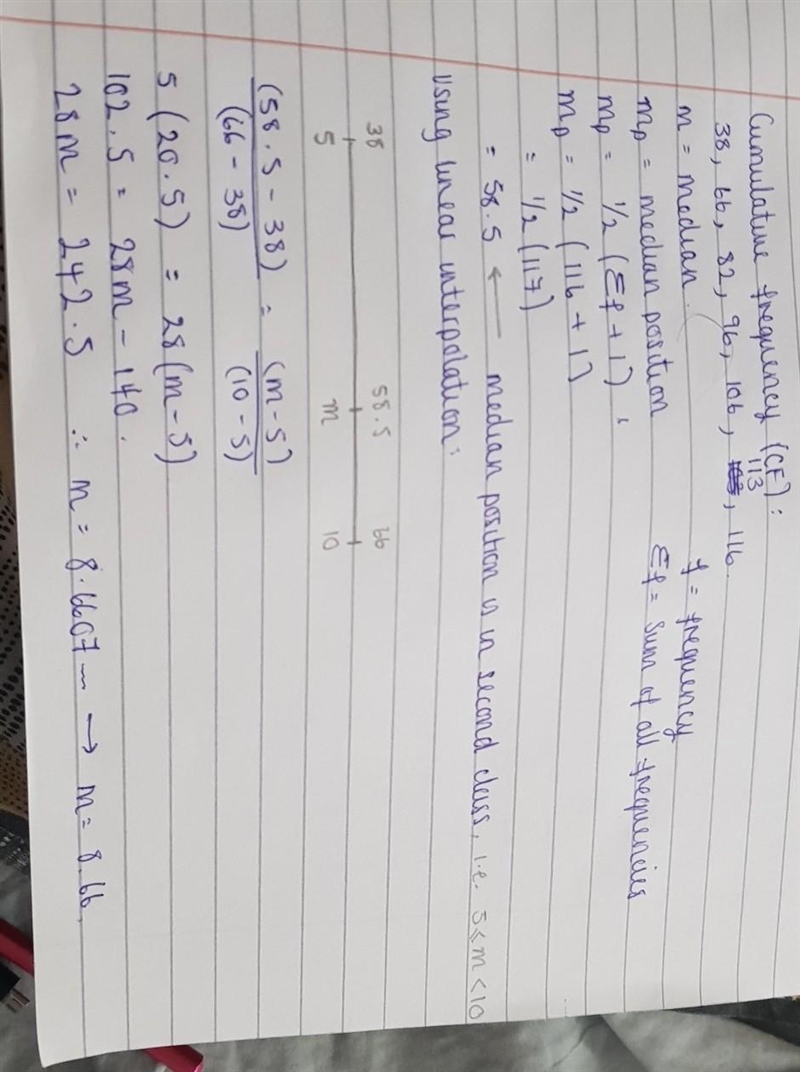 Cumulative frequency (CF):
38, 66, 82, 96, 106, 113, 116.
m = median. f = frequency
mp = median position Σf = sum of all frequencies
mp = 1/2 (Σf + 1).
mp = 1/2 (116 + 1)
= 1/2 (117)
= 58.5 ← median position is in second class, i.e. 5 ≤ m < 10
Using linear interpolation:
38 58.5 66
5 m 10
(58.5 - 38) / (66 - 38) = (m - 5) / (10 - 5)
5 (20.5) = 28(m - 5)
102.5 = 28m - 140.
28m = 242.5 ∴ m = 8.6607... → m = 8.66.